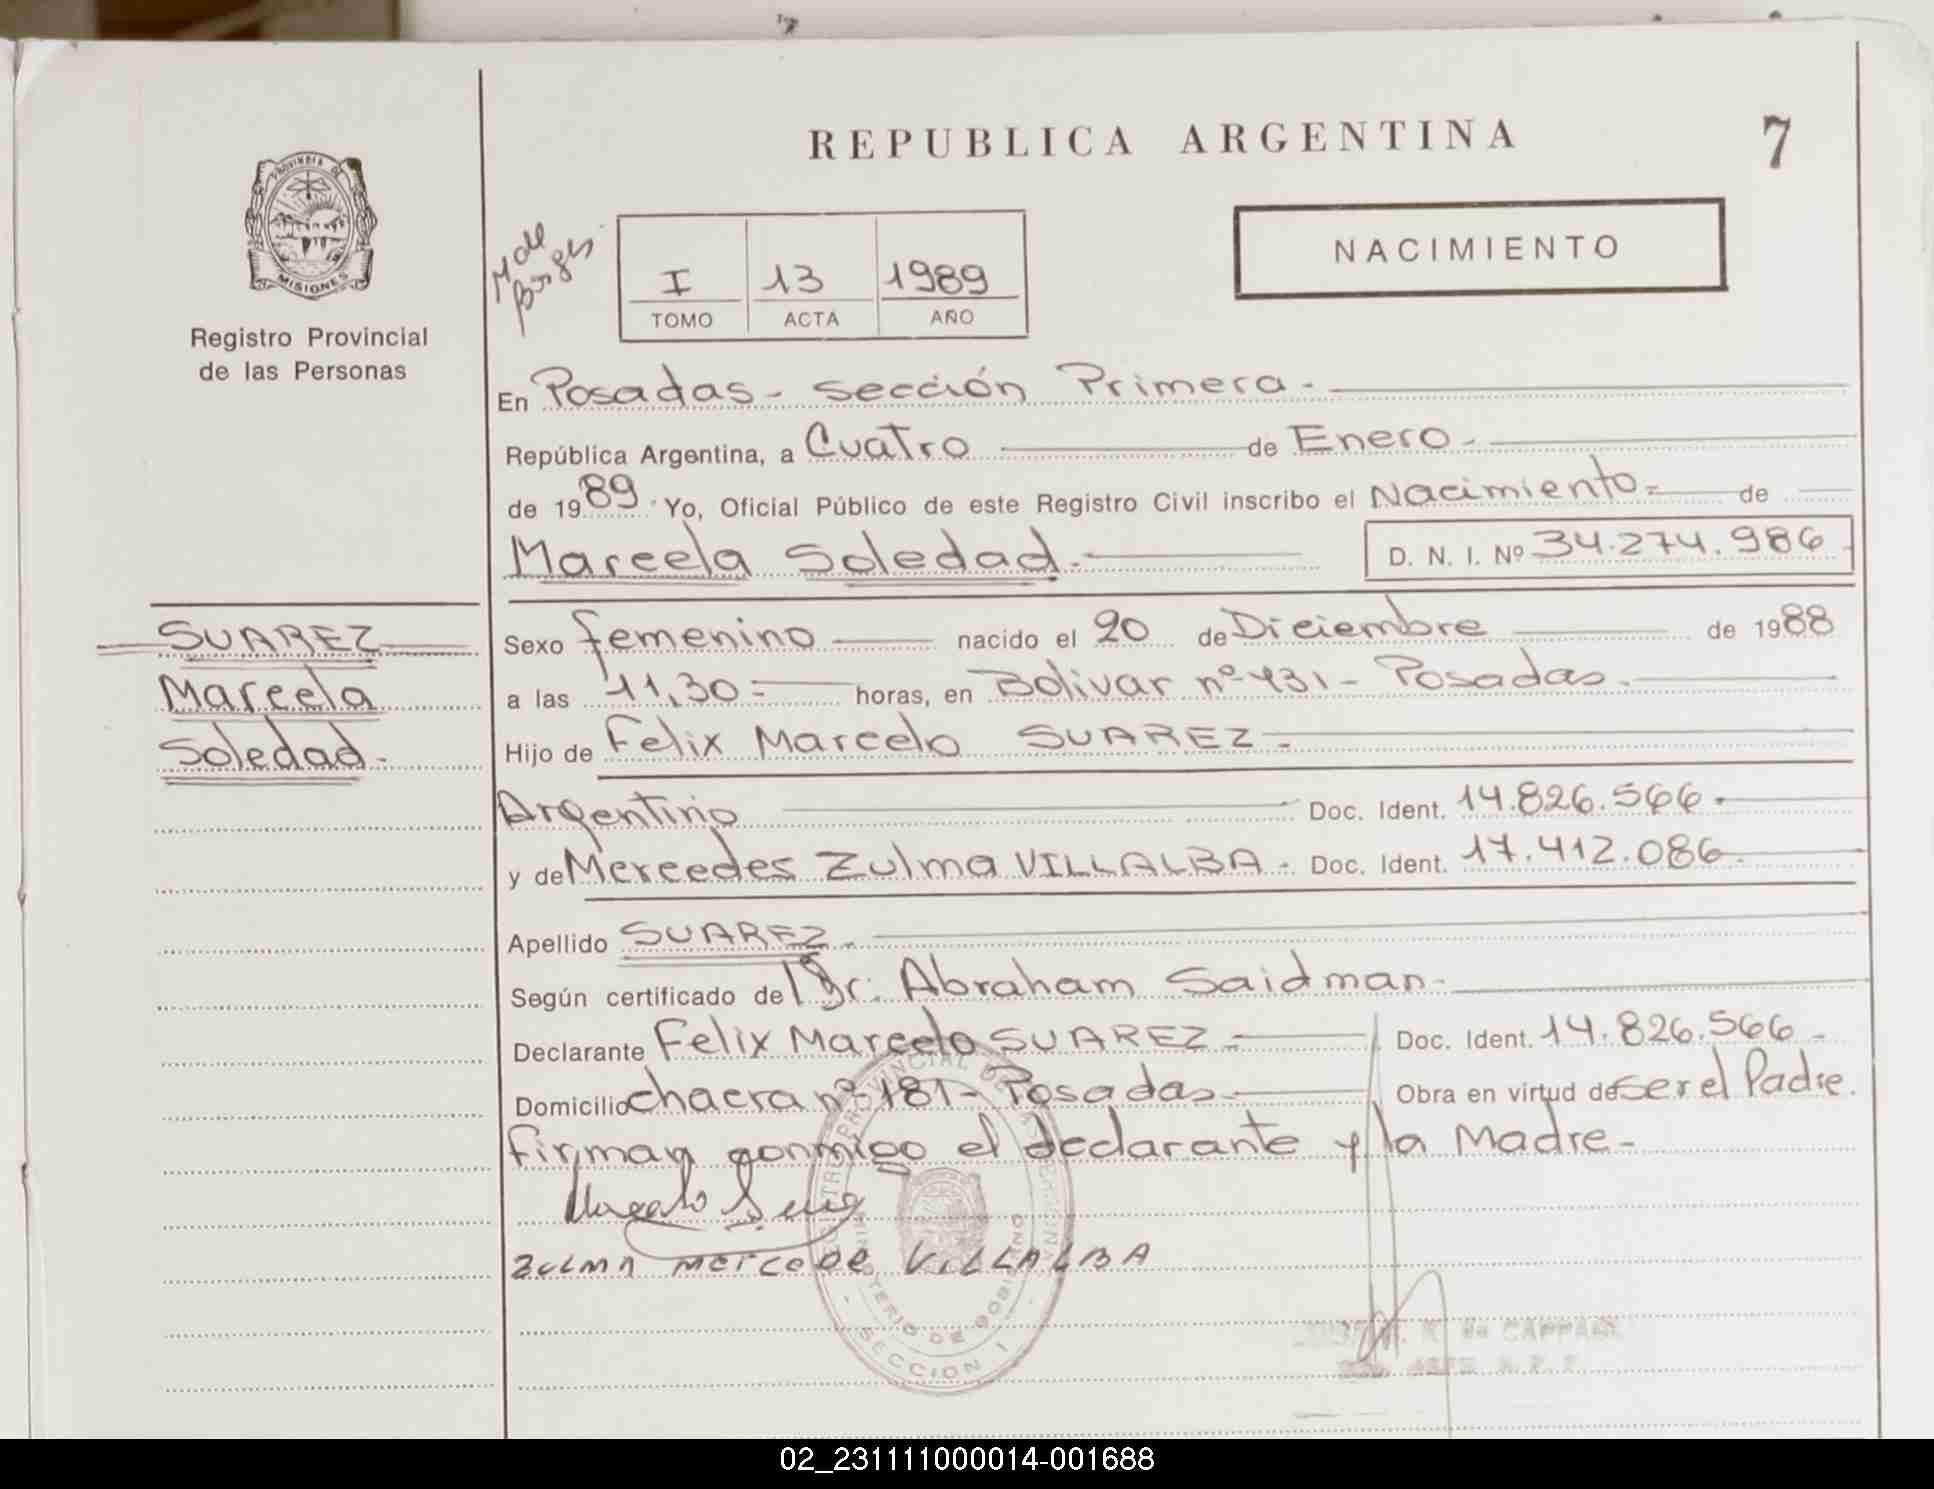 7
REPUBLICA ARGENTINA
PROVINCIA DE
MISIONES
Registro Provincial
de las Personas
M de
Borges
I 13 1989
TOMO ACTA AÑO
NACIMIENTO
En Posadas - sección Primera -
República Argentina, a Cuatro de Enero -
de 1989 Yo, Oficial Público de este Registro Civil inscribo el Nacimiento - de
Marcela Soledad. - D. N. I. Nº 34.274.986
SUAREZ
Marcela
Soledad -
Sexo femenino nacido el 20 de Diciembre de 1988
a las 11,30 = horas, en Bolivar nº 431 - Posadas.
Hijo de Felix Marcelo SUAREZ -
Argentino Doc. Ident. 14.826.566 -
y de Mercedes Zulma VILLALBA - Doc. Ident. 17.412.086 -
Apellido SUAREZ -
Según certificado del Dr. Abraham Saidman -
Declarante Felix Marcelo SUAREZ - Doc. Ident. 14.826.566 -
Domicilio chacra nº 181 - Posadas - Obra en virtud de ser el Padre.
firman conmigo el declarante y la Madre -
ZULMA MERCEDE VILLALBA
MINISTERIO DE GOBIERNO
SECCION 1
de
02_231111000014-001688